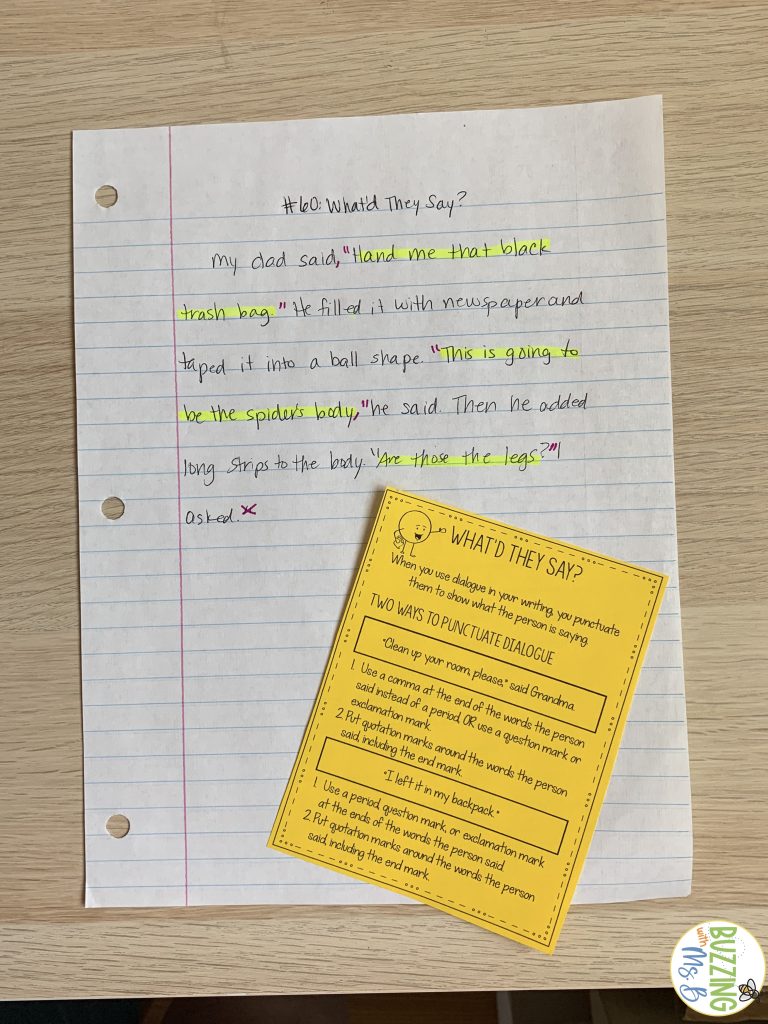 #60: What'd They Say?
My dad said, "Hand me that black
trash bag." He filled it with newspaper and
taped it into a ball shape. "This is going to
be the spider's body," he said. Then he added
long strips to the body. "Are those the legs?" I
asked. x
WHAT'D THEY SAY?
When you use dialogue in your writing, you punctuate
them to show what the person is saying.
TWO WAYS TO PUNCTUATE DIALOGUE
"Clean up your room, please," said Grandma.
1. Use a comma at the end of the words the person
said instead of a period, OR use a question mark or
exclamation mark.
2. Put quotation marks around the words the person
said, including the end mark.
"I left it in my backpack."
1. Use a period, question mark, or exclamation mark
at the ends of the words the person said.
2. Put quotation marks around the words the person
said, including the end mark.
BUZZING
with
Ms. B